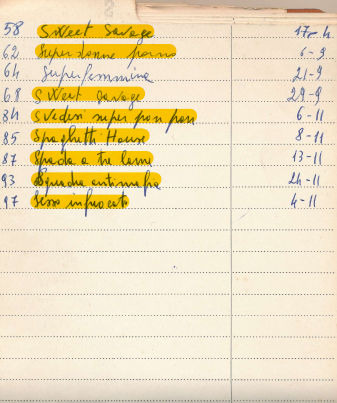 58 Sweet Savage 17-4
62 Superdonne porno 6-9
64 Superfemmina 21-9
68 Sweet Savage 29-9
84 Svedesi super porn porn 6-11
85 Spaghetti House 8-11
87 Spada a tre lame 13-11
93 Squadra antimafia 24-11
97 Sesso infuocato 4-11